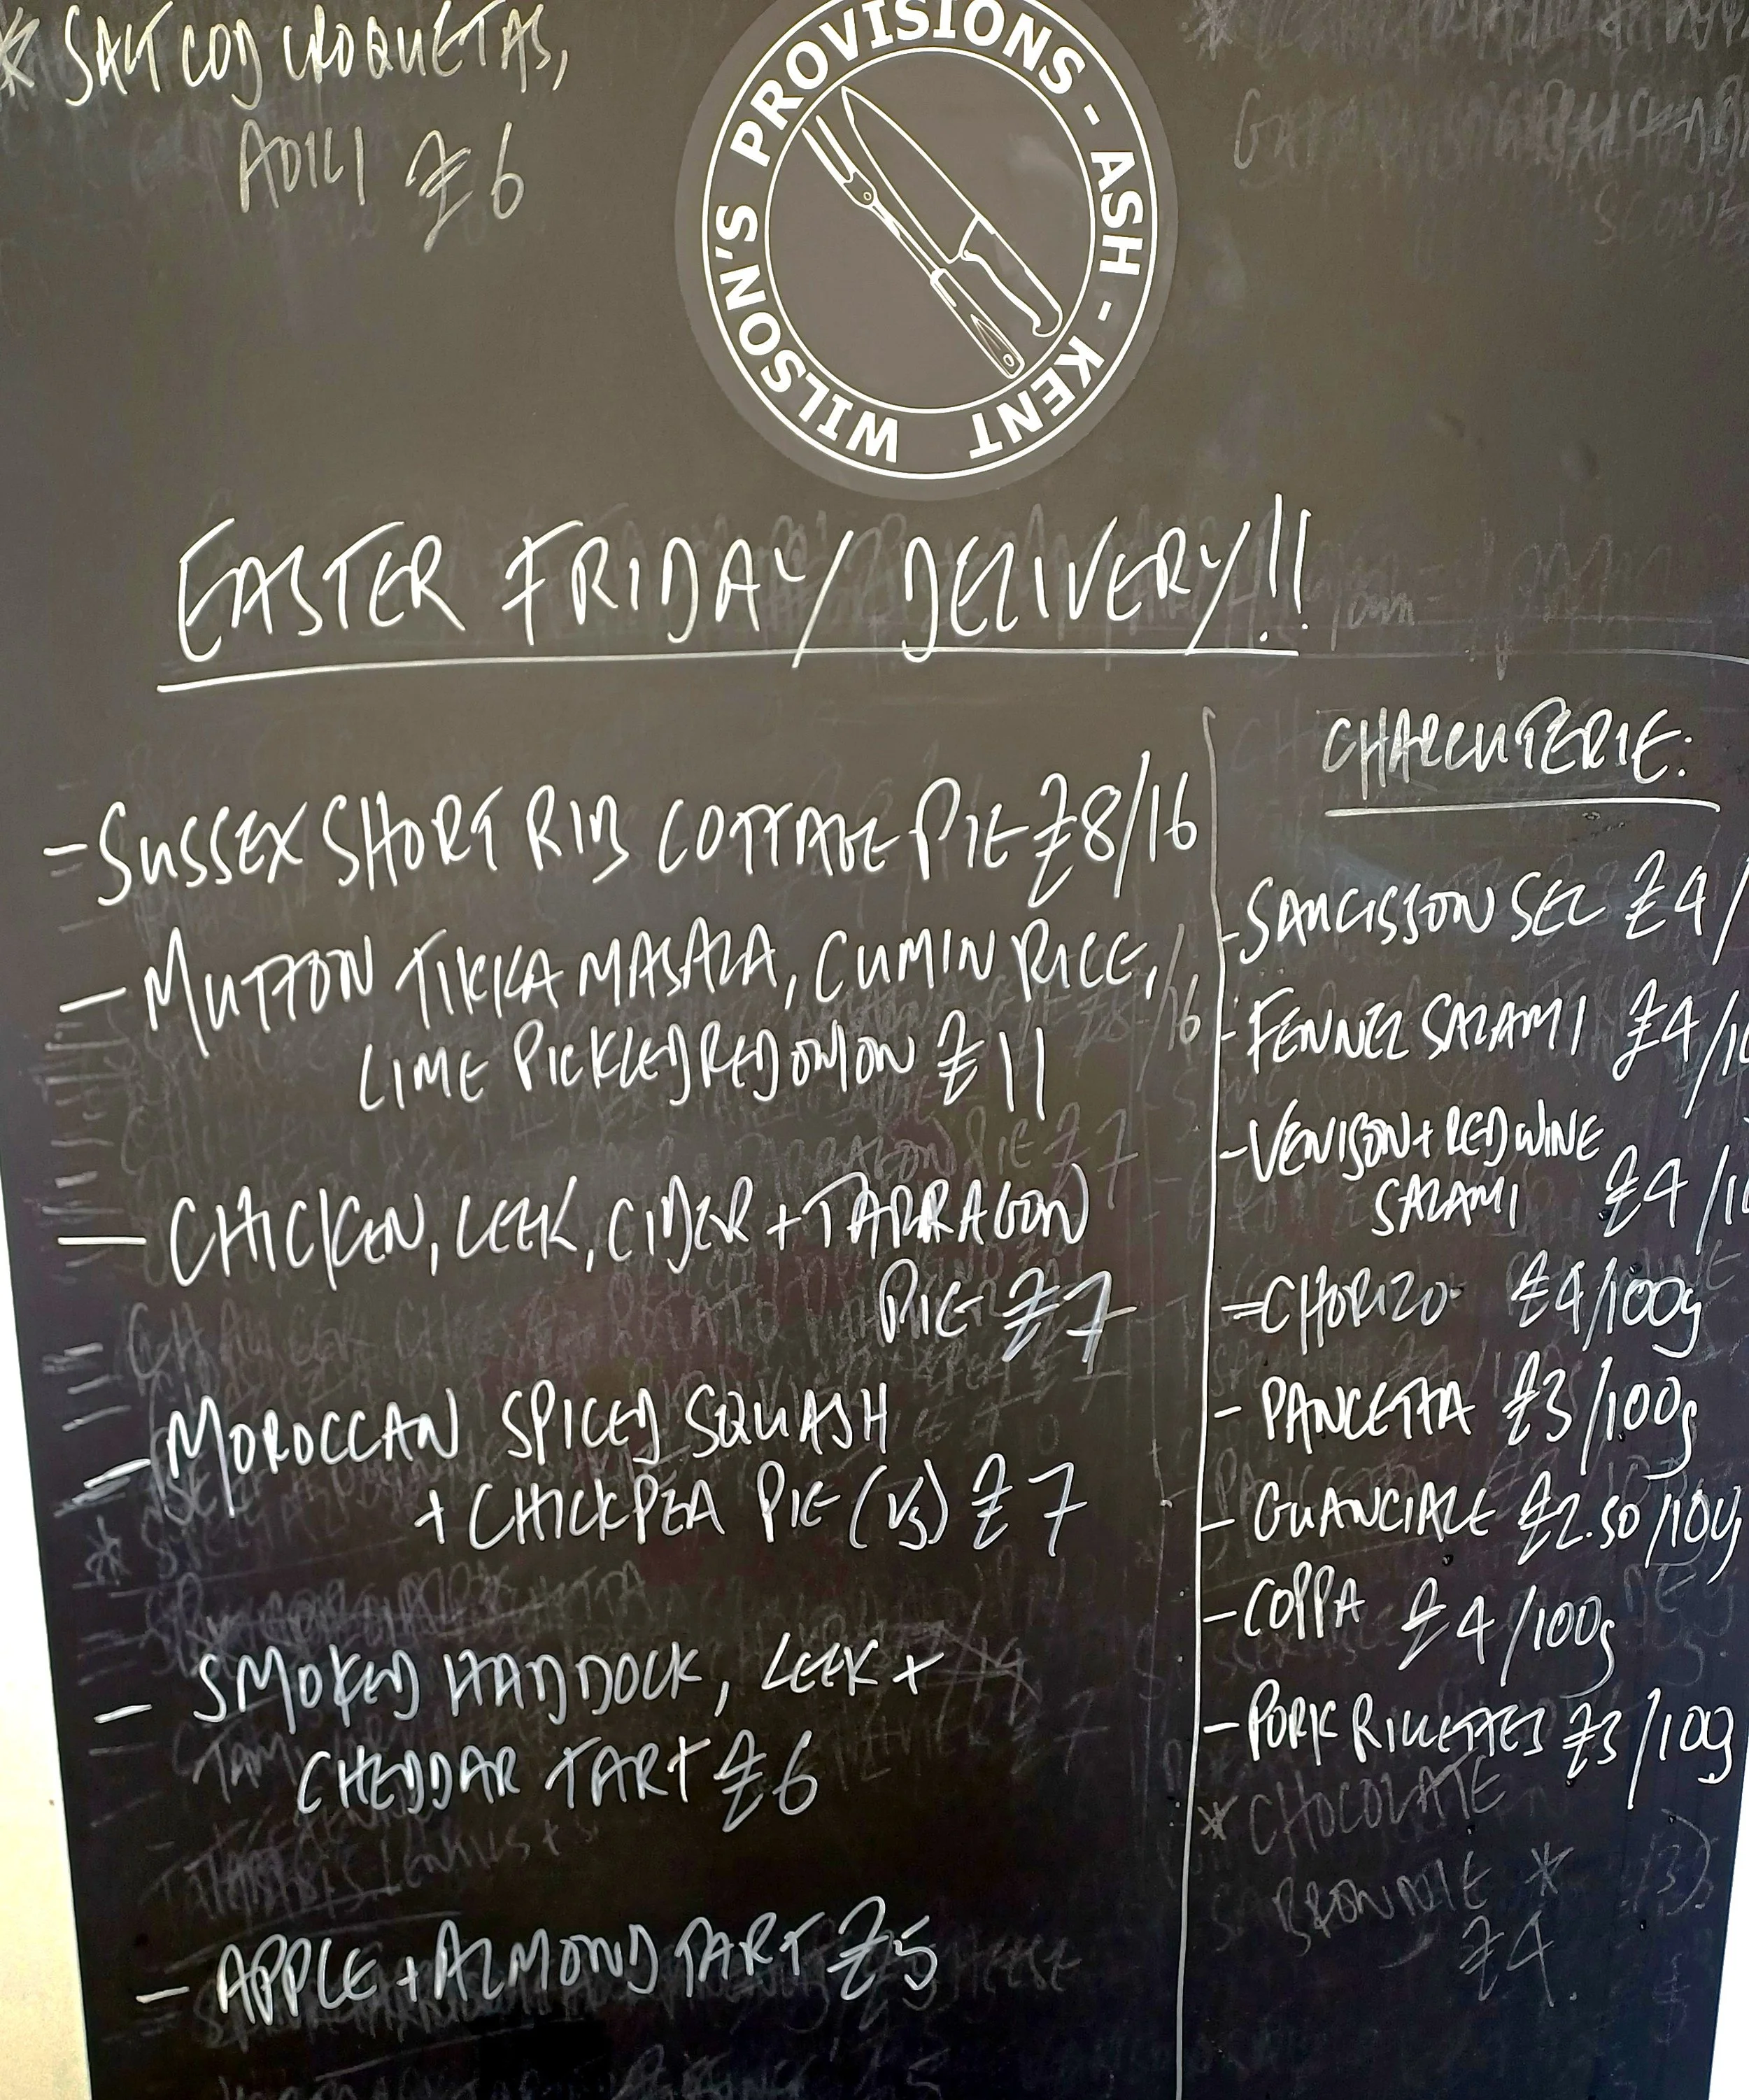 * SALT COD CROQUETAS,
AOILI £6
WILSON'S PROVISIONS - ASH - KENT
EASTER FRIDAY/DELIVERY!!
- SUSSEX SHORT RIB COTTAGE PIE £8/16
- MUTTON TIKKA MASALA, CUMIN RICE,
LIME PICKLED RED ONION £11
- CHICKEN, LEEK, CIDER + TARRAGON
PIE £7
- MOROCCAN SPICED SQUASH
+ CHICKPEA PIE (VG) £7
- SMOKED HADDOCK, LEEK +
CHEDDAR TART £6
- APPLE + ALMOND TART £5
CHARCUTERIE:
- SAUCISSON SEC £4/
- FENNEL SALAMI £4/10
- VENISON + RED WINE
SALAMI £4/10
- CHORIZO £4/100g
- PANCETTA £3/100g
- GUANCIALE £2.50/100g
- COPPA £4/100g
- PORK RILLETTES £3/100g
* CHOCOLATE
BROWNIE *
£4.